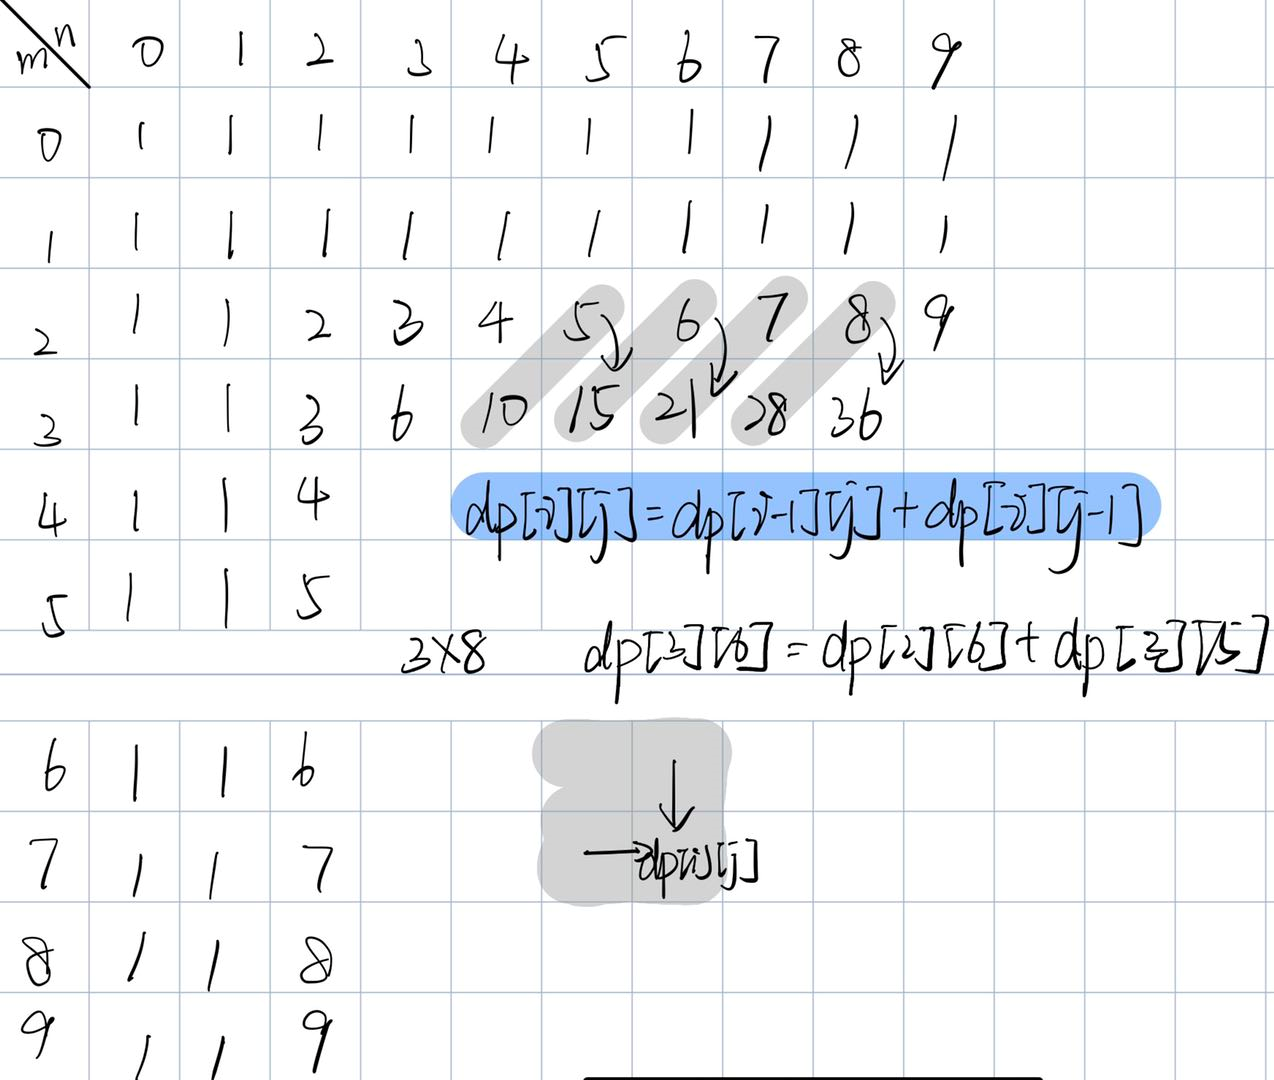 m n 0 1 2 3 4 5 6 7 8 9
0 1 1 1 1 1 1 1 1 1 1
1 1 1 1 1 1 1 1 1 1 1
2 1 1 2 3 4 5 6 7 8 9
3 1 1 3 6 10 15 21 28 36
4 1 1 4 dp[i][j]=dp[i-1][j]+dp[i][j-1]
5 1 1 5
3×8 dp[3][6]=dp[2][6]+dp[3][5]
6 1 1 6
7 1 1 7 dp[i][j]
8 1 1 8
9 1 1 9